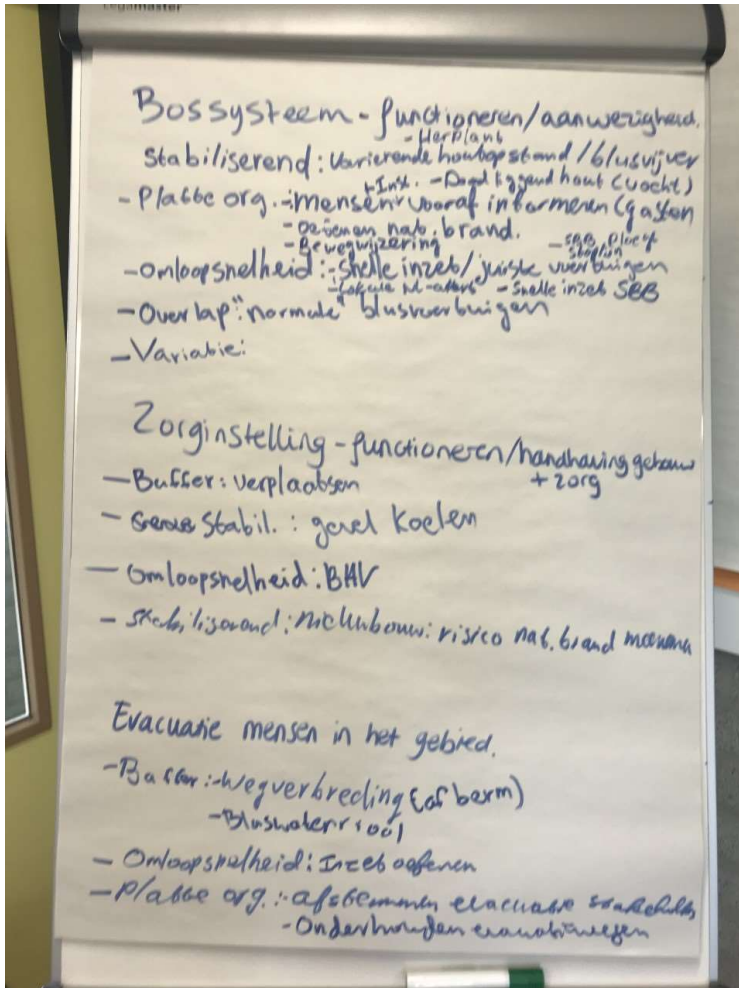 Legamaster
Bossysteem - functioneren/aanwezigheid.
- Herplant
Stabiliserend: Varierende houtopstand/blusvijver
+ Inst. - Dood liggend hout (vocht)
- Platte org.: - mensen vooraf informeren (gasten
- oefenen nat. brand.
- Bewegwijzering
- SBB,
- Omloopsnelheid: - snelle inzet/juiste voertuigen
- Lokale - Snelle inzet SBB
- Overlap: "normale" blusvoertuigen
- Variatie:
Zorginstelling - functioneren/handhaving gebouw
+ zorg
- Buffer: verplaatsen
- Stabil.: gevel koelen
- Omloopsnelheid: BHV
- Stabiliserend: nieuwbouw: risico nat. brand
Evacuatie mensen in het gebied.
- Buffer: - wegverbreding (of berm)
- Bluswaterriool
- Omloopsnelheid: Inzet oefenen
- Platte org.: - afstemmen evacuatie stakeholders
- Onderhouden evacuatiewegen